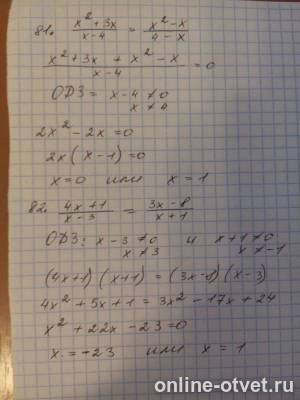 81. (x² + 3x)/(x - 4) = (x² - x)/(4 - x)
(x² + 3x + x² - x)/(x - 4) = 0
ОДЗ = x - 4 ≠ 0
x ≠ 4
2x² - 2x = 0
2x(x - 1) = 0
x = 0 или x = 1
82. (4x + 1)/(x - 3) = (3x - 8)/(x + 1)
ОДЗ: x - 3 ≠ 0 и x + 1 ≠ 0
x ≠ 3 x ≠ -1
(4x + 1)(x + 1) = (3x - 8)(x - 3)
4x² + 5x + 1 = 3x² - 17x + 24
x² + 22x - 23 = 0
x = -23 или x = 1
online-otvet.ru